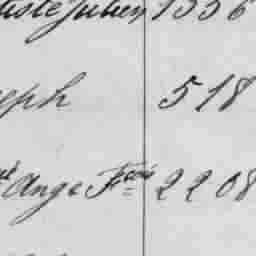 iste Julien 1556
eph 518
Ange Fcois 2208